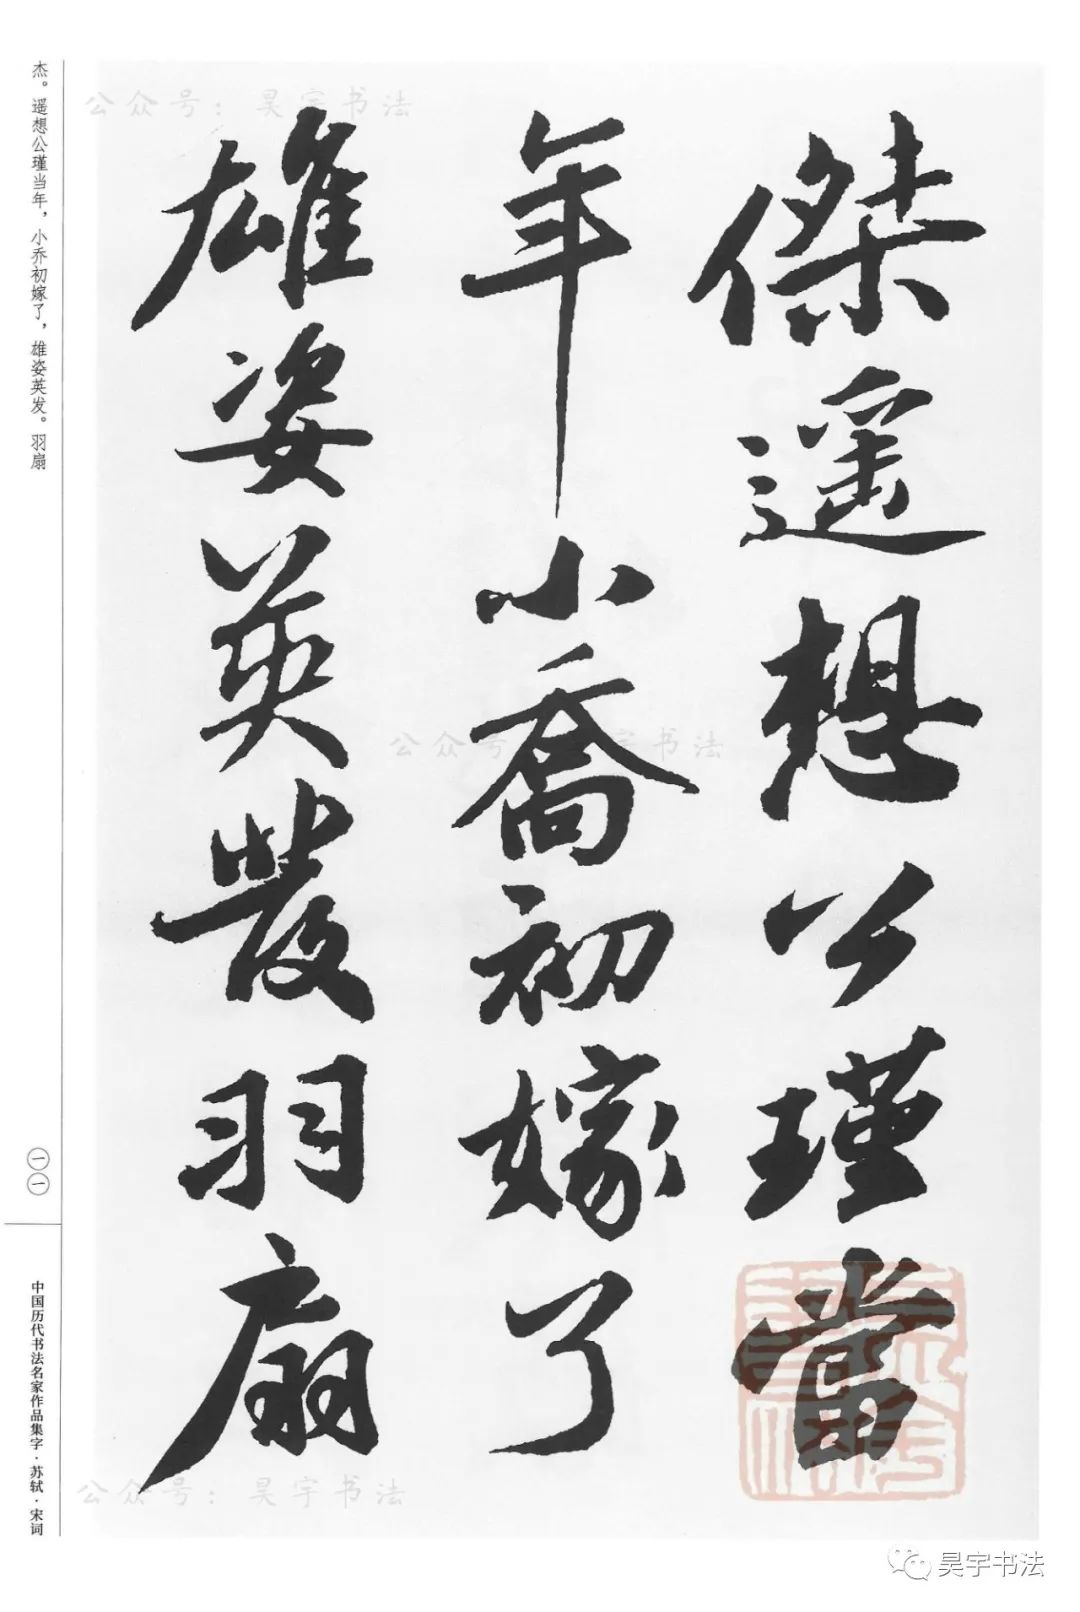 傑遥想公瑾當
年小喬初嫁了
雄姿英發羽扇
杰。遥想公瑾当年，小乔初嫁了，雄姿英发。羽扇
一一
中国历代书法名家作品集字·苏轼·宋词
公众号：昊宇书法
公众号：昊宇书法
公众号：昊宇书法
昊宇书法